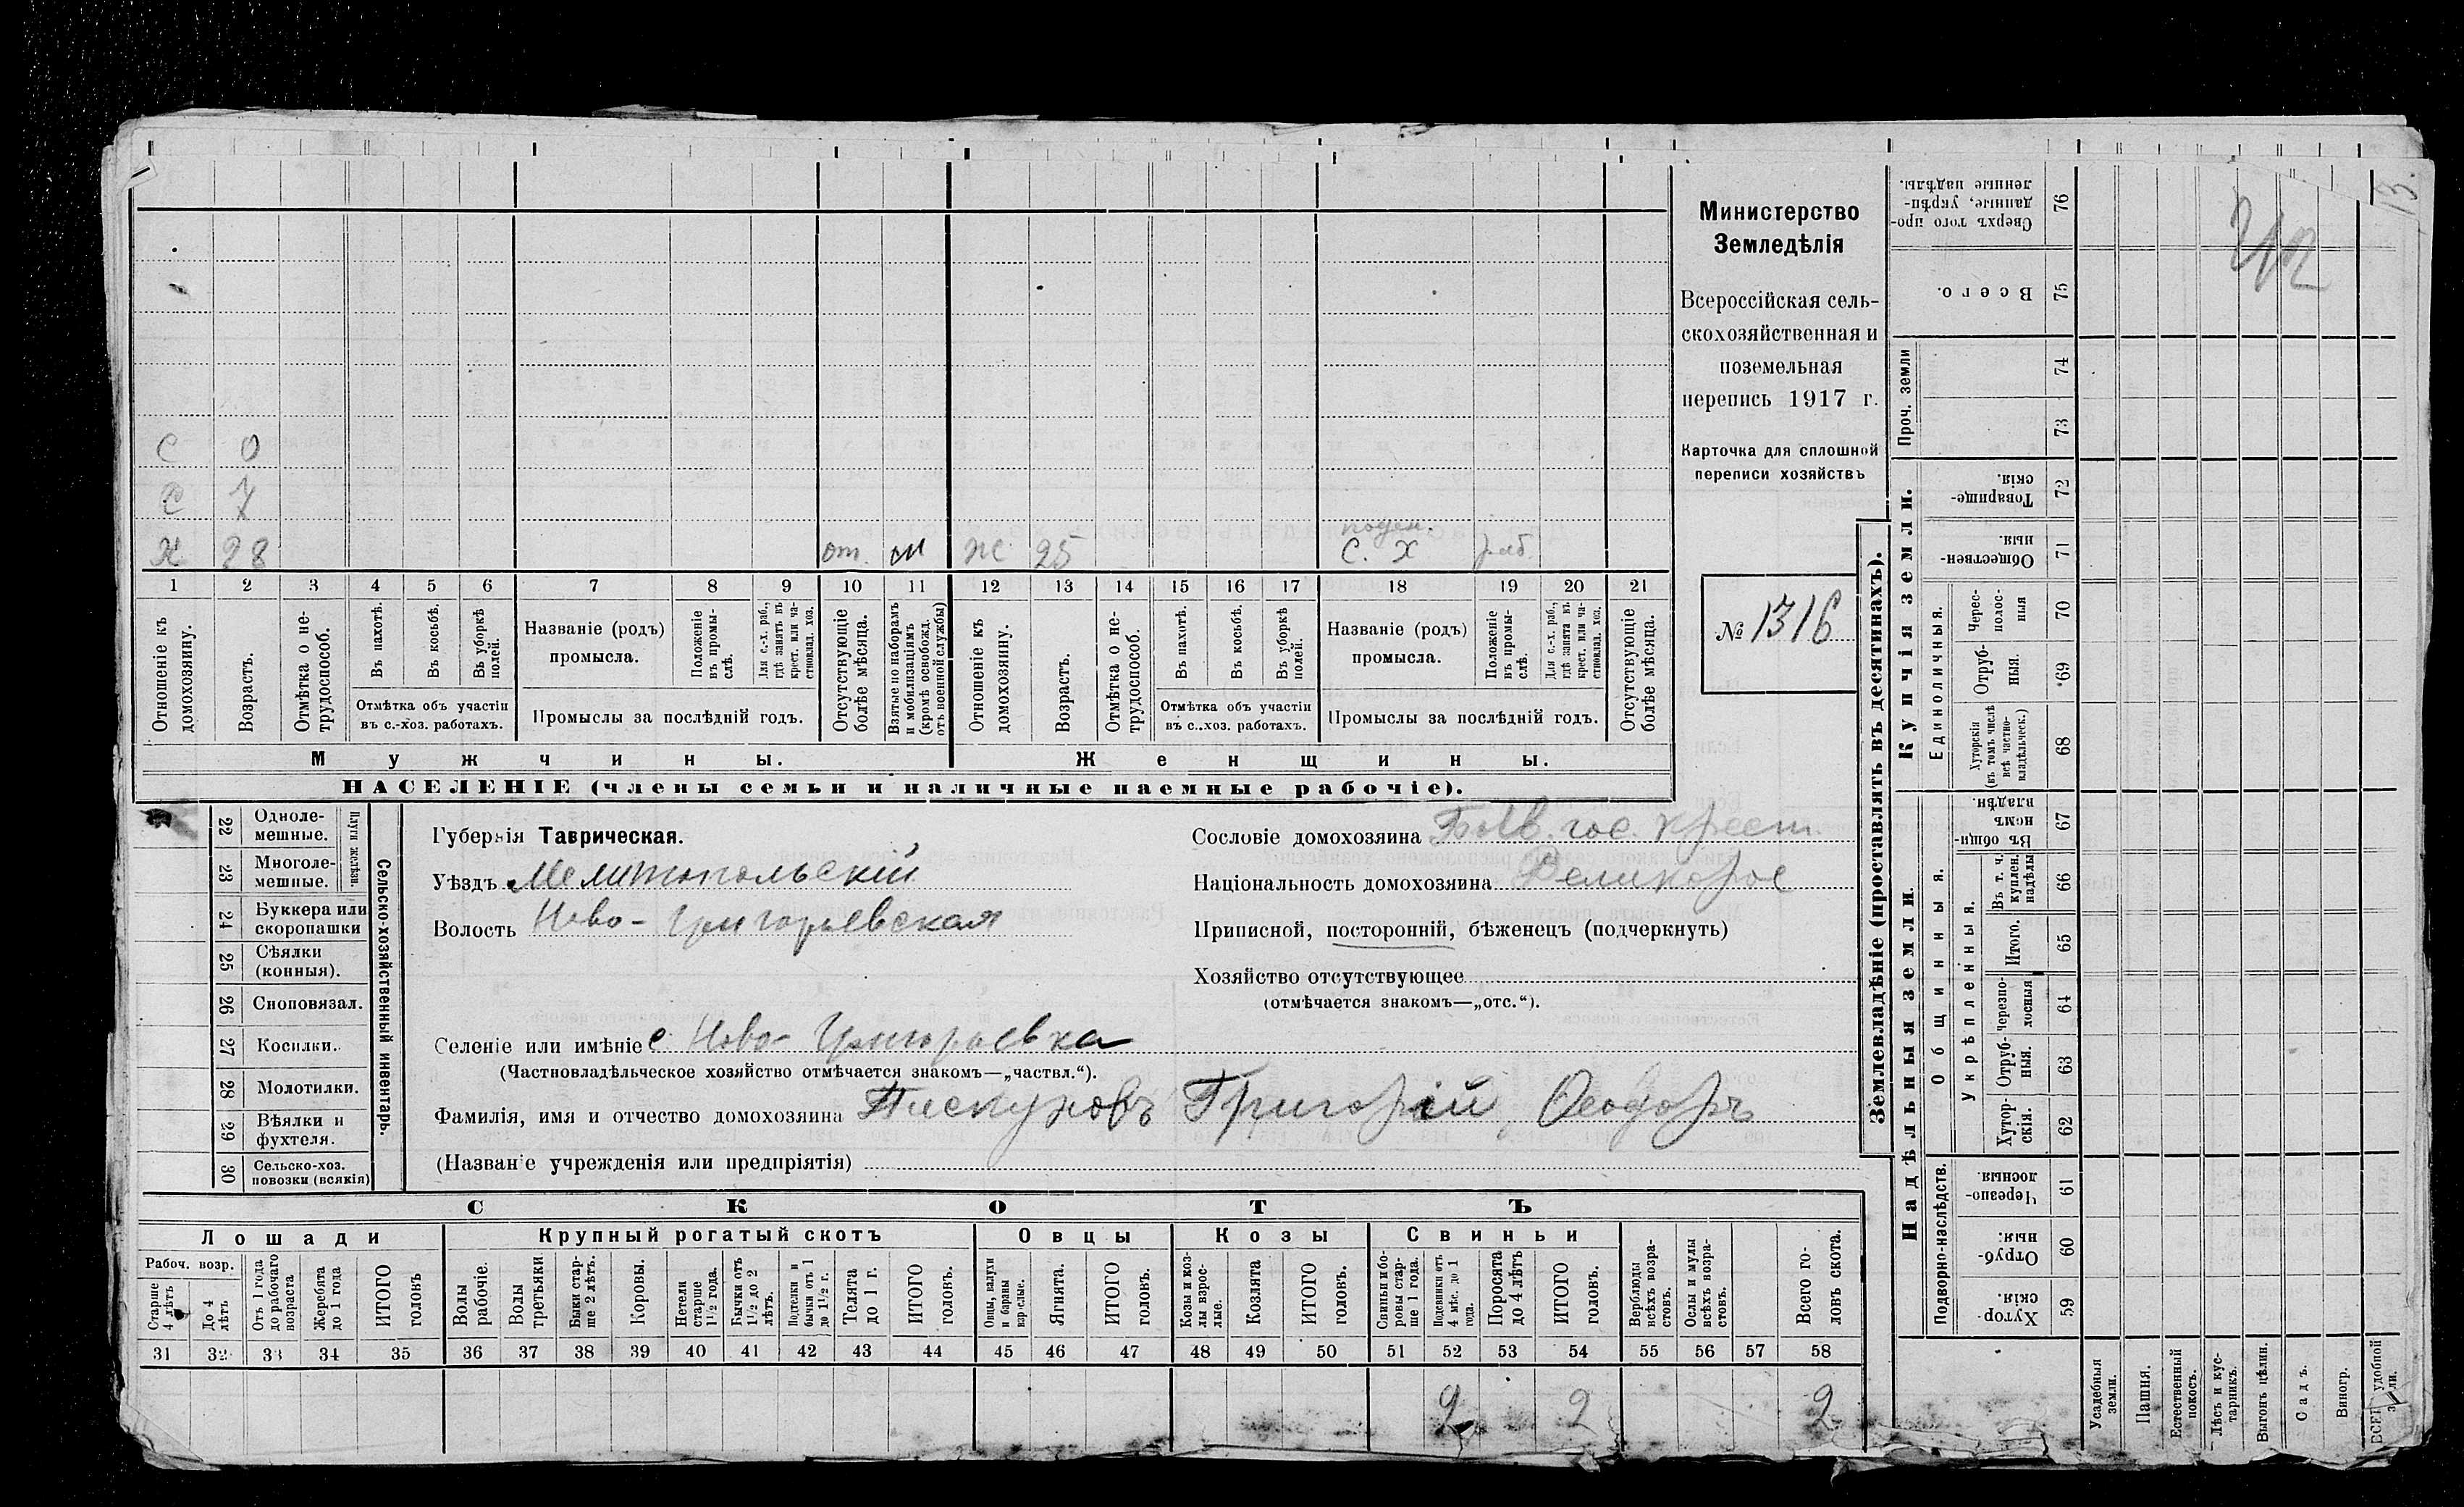 Министерство
Земледѣлія
Всероссійская сель-
скохозяйственная и
поземельная
перепись 1917 г.
Карточка для сплошной
переписи хозяйствъ
№ 1316
С 0
С 7
Х 28 от. м Ж 25 поден. с. х раб.
1 2 3 4 5 6 7 8 9 10 11 12 13 14 15 16 17 18 19 20 21
Отношеніе къ домохозяину.
Возрастъ.
Отмѣтка о не-трудоспособ.
Въ пахотѣ.
Въ косьбѣ.
Въ уборкѣ полей.
Отмѣтка объ участіи въ с.-хоз. работахъ.
Названіе (родъ) промысла.
Положеніе въ промы-слѣ.
Для с.-х. раб., гдѣ занятъ въ крест. или ча-стновлад. хоз.
Промыслы за послѣдній годъ.
Отсутствующіе болѣе мѣсяца.
Взятые по наборамъ и мобилизаціямъ (кромѣ освобожд. отъ военной службы)
Отношеніе къ домохозяину.
Возрастъ.
Отмѣтка о не-трудоспособ.
Въ пахотѣ.
Въ косьбѣ.
Въ уборкѣ полей.
Отмѣтка объ участіи въ с.-хоз. работахъ.
Названіе (родъ) промысла.
Положеніе въ промы-слѣ.
Для с.-х. раб., гдѣ занята въ крест. или ча-стновлад. хоз.
Промыслы за послѣдній годъ.
Отсутствующіе болѣе мѣсяца.
Мужчины. Женщины.
НАСЕЛЕНІЕ (члены семьи и наличные наемные рабочіе).
22 Одноле-мешные.
23 Многоле-мешные.
Плуги желѣзн.
24 Буккера или скоропашки
25 Сѣялки (конныя).
26 Сноповязал.
27 Косилки.
28 Молотилки.
29 Вѣялки и фухтеля.
30 Сельско-хоз. повозки (всякія)
Сельско-хозяйственный инвентарь.
Губернія Таврическая.
Уѣздъ Мелитопольскій
Волость Ново-Григорьевская
Сословіе домохозяина гос. крест.
Національность домохозяина Великорос
Приписной, посторонній, бѣженецъ (подчеркнуть)
Хозяйство отсутствующее
(отмѣчается знакомъ—„отс.“).
Селеніе или имѣніе с. Ново-Григорьевка
(Частновладѣльческое хозяйство отмѣчается знакомъ—„частвл.“).
Фамилія, имя и отчество домохозяина Пискуновъ Григорій Ѳеодоръ
(Названіе учрежденія или предпріятія)
СКОТЪ
Лошади Крупный рогатый скотъ Овцы Козы Свиньи
Рабоч. возр.
Старше 4 лѣтъ
До 4 лѣтъ
Отъ 1 года до рабочаго возраста
Жеребята до 1 года
ИТОГО головъ
Волы рабочіе.
Волы третьяки
Быки стар-ше 2 лѣтъ.
Коровы.
Нетели старше 1 1/2 года.
Бычки отъ 1 1/2 до 2 лѣтъ.
Подтелки и бычки отъ 1 до 1 1/2 г.
Телята до 1 г.
ИТОГО головъ.
Овцы, валухи и бараны взрослые.
Ягнята.
ИТОГО головъ.
Козы и коз-лы взрос-лые.
Козлята
ИТОГО головъ.
Свиньи и бо-ровы стар-ше 1 года.
Подсвинки отъ 4 мѣс. до 1 года.
Поросята до 4 лѣтъ
ИТОГО головъ.
Верблюды всѣхъ возра-стовъ.
Ослы и мулы всѣхъ возра-стовъ.
Всего го-ловъ скота.
31 32 33 34 35 36 37 38 39 40 41 42 43 44 45 46 47 48 49 50 51 52 53 54 55 56 57 58
2 2 2
Землевладѣніе (проставлять въ десятинахъ).
Надѣльныя земли.
Купчія земли.
Проч. земли
Сверхъ того про-данные, укрѣп-ленные надѣлы. 76
Всего. 75
74
73
Товарище-скія. 72
Обществен-ныя. 71
Единоличныя.
Черес-полос-ныя 70
Отруб-ныя. *69
Хуторскія (въ томъ числѣ всѣ частно-владѣльческ.) 68
Общинныя.
Въ общи-номъ владѣн. 67
Укрѣпленныя.
Въ т. ч. куплен. надѣлы 66
Итого. 65
Черезпо-лосныя 64
Отруб-ныя. 63
Хутор-скія. 62
Подворно-наслѣдств.
Черезпо-лосныя 61
Отруб-ныя. 60
Хутор-скія. 59
Усадебныя земли.
Пашня.
Естественный покосъ.
Лѣсъ и кус-тарникъ.
Выгонъ цѣлин.
Садъ.
Виногр.
удобной
13.